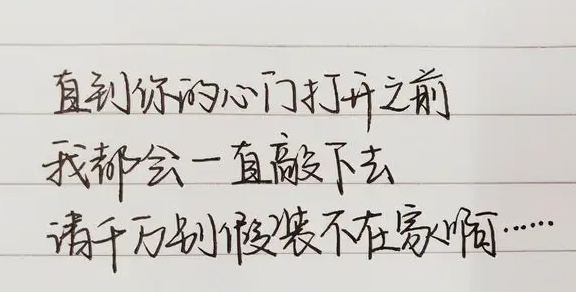 直到你的心门打开之前
我都会一直敲下去
请千万别假装不在家啊……